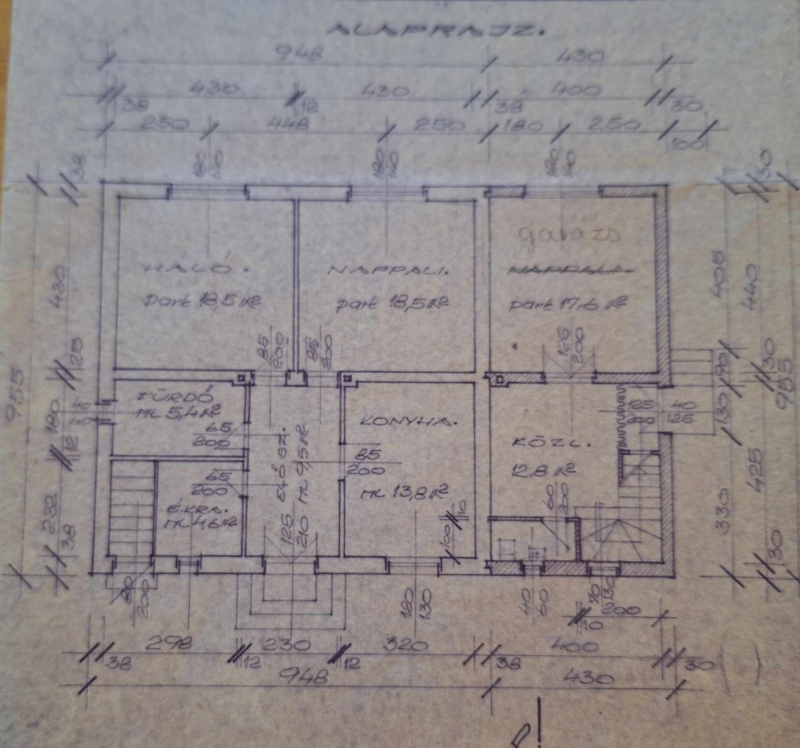 ALAPRAJZ.
948 430
38 430 12 430 38 400 30
250 448 250 180 250 100
180/140 180/140 180/140
38 30
garázs
HÁLÓ. NAPPALI. NAPPALI.
part 18,5 m² part 18,5 m² part 17,6 m²
430 405 440
85/200 85/200 125/200
25 90 30
955 955
FÜRDŐ
mk 5,4 m²
KONYHA.
65/200
180 125/200 40/125 130
ELŐSZ. mk 9,5 m²
KÖZL.
12,8 m²
12
85/200
65/200
425
É.KRA.
mk 4,6 m²
mk 13,8 m²
232 60/200 330
100 10
125/210
38 30
200 120/130 40/60 200
10
298 230 320 400
38 12 12 38 30
948 430